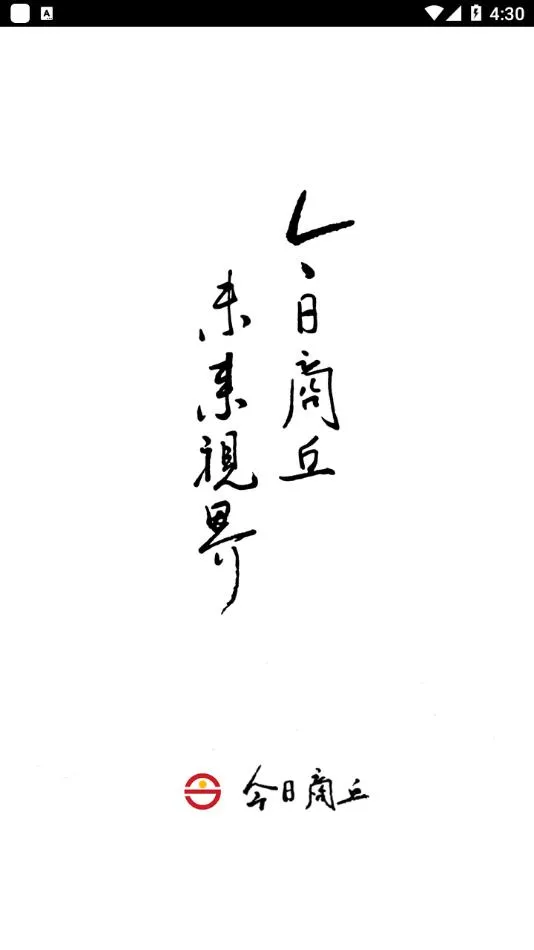 4:30
今日商丘
未来視界
今日商丘